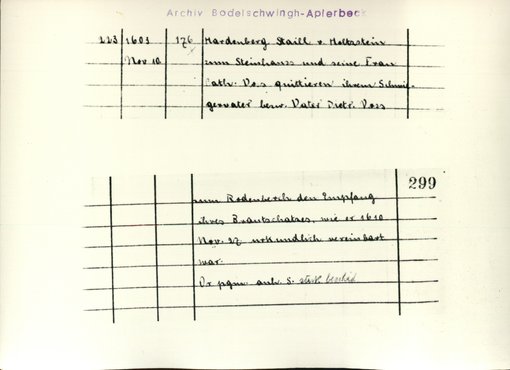 Archiv Bodelschwingh-Aplerbeck
223 1603 176 Hardenberg Staill v. Holtstein
Nov. 10 zum Steinhaus und seine Frau
Cath. Vos quittieren ihrem Schwie-
gervater bezw. Vater Dietr. Voss
299
zum Rodenberch den Empfang
ihres Brautschatzes, wie er 1610
Nov. 27 urkundlich vereinbart
war.
Or. pgm. anh. S. stark beschäd.